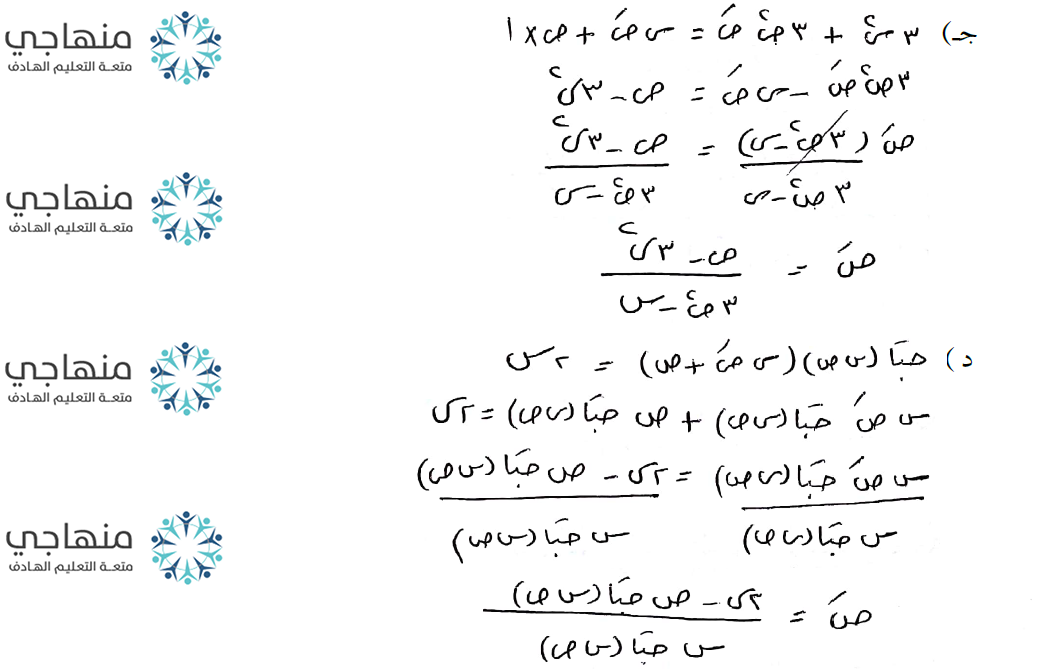 منهاجي
متعة التعليم الهادف
منهاجي
متعة التعليم الهادف
منهاجي
متعة التعليم الهادف
منهاجي
متعة التعليم الهادف
جـ) ٣س² + ٣ص² صَ = س صَ + ص × ١
٣ص² صَ − س صَ = ص − ٣س²
صَ (٣ص² − س) / (٣ص² − س) = (ص − ٣س²) / (٣ص² − س)
صَ = (ص − ٣س²) / (٣ص² − س)
د) جتا (س ص) (س صَ + ص) = ٢س
س صَ جتا (س ص) + ص جتا (س ص) = ٢س
س صَ جتا (س ص) / س جتا (س ص) = (٢س − ص جتا (س ص)) / س جتا (س ص)
صَ = (٢س − ص جتا (س ص)) / س جتا (س ص)